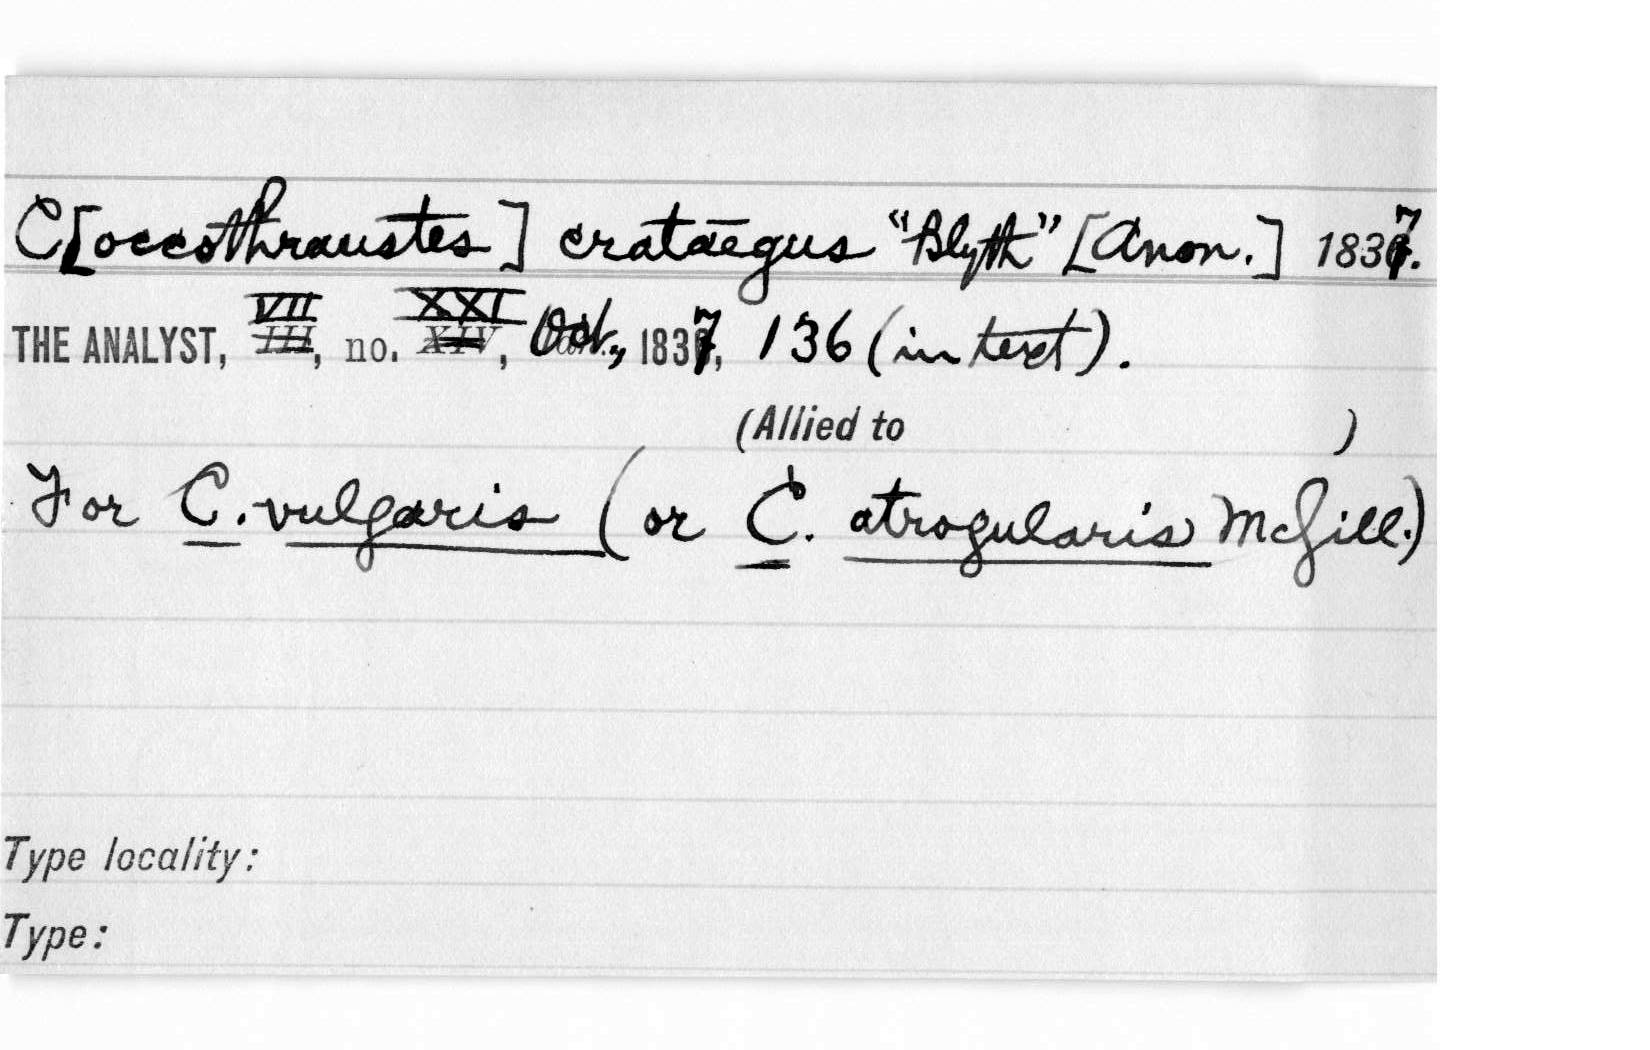 C[occothraustes] crataegus "Blyth" [Anon.] 1837.
THE ANALYST, VII, no. XXI, Oct., 1837, 136 (in text).
(Allied to )
For C. vulgaris (or C. atrogularis McGill.)
Type locality:
Type: